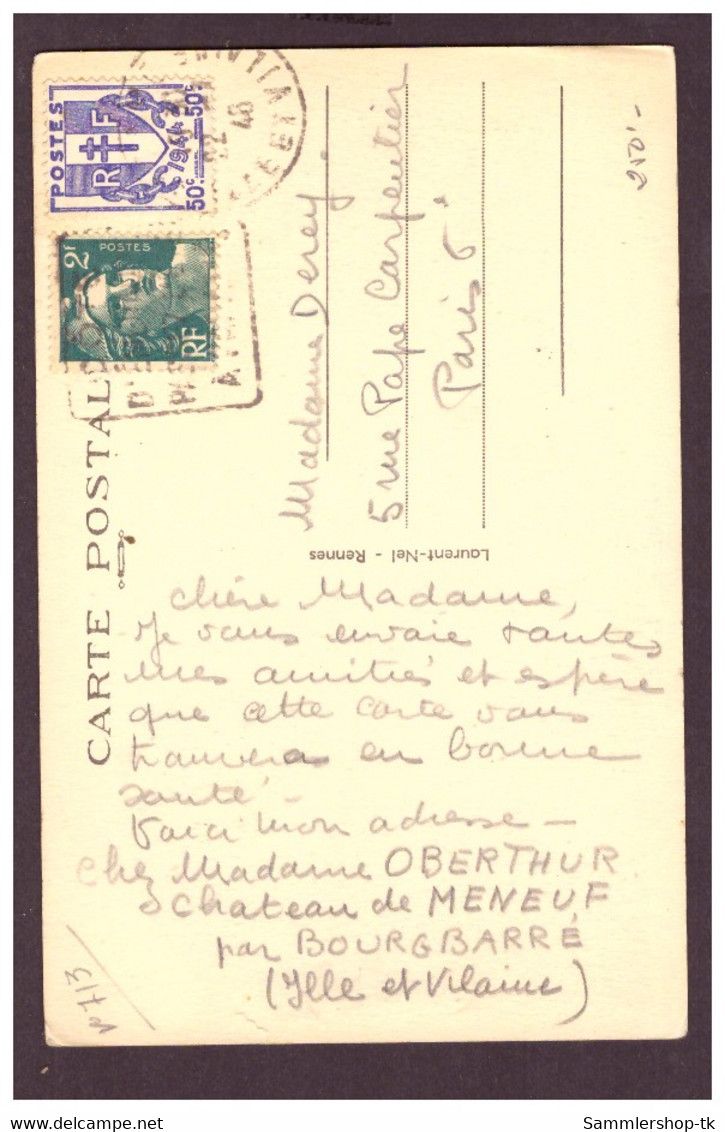 CARTE POSTALE
POSTES
RF
1944
50c
50c
2F
POSTES
RF
46
Madame Derey.
5 rue Pape Carpentier
Paris 6
Laurent-Nel - Rennes
Chère Madame,
Je vous envoie toutes
mes amitiés et espère
que cette carte vous
trouvera en bonne
santé -
Voici mon adresse -
chez Madame OBERTHUR
Chateau de MENEUF
par BOURGBARRÉ
(Ille et Vilaine)
Sammlershop-tk